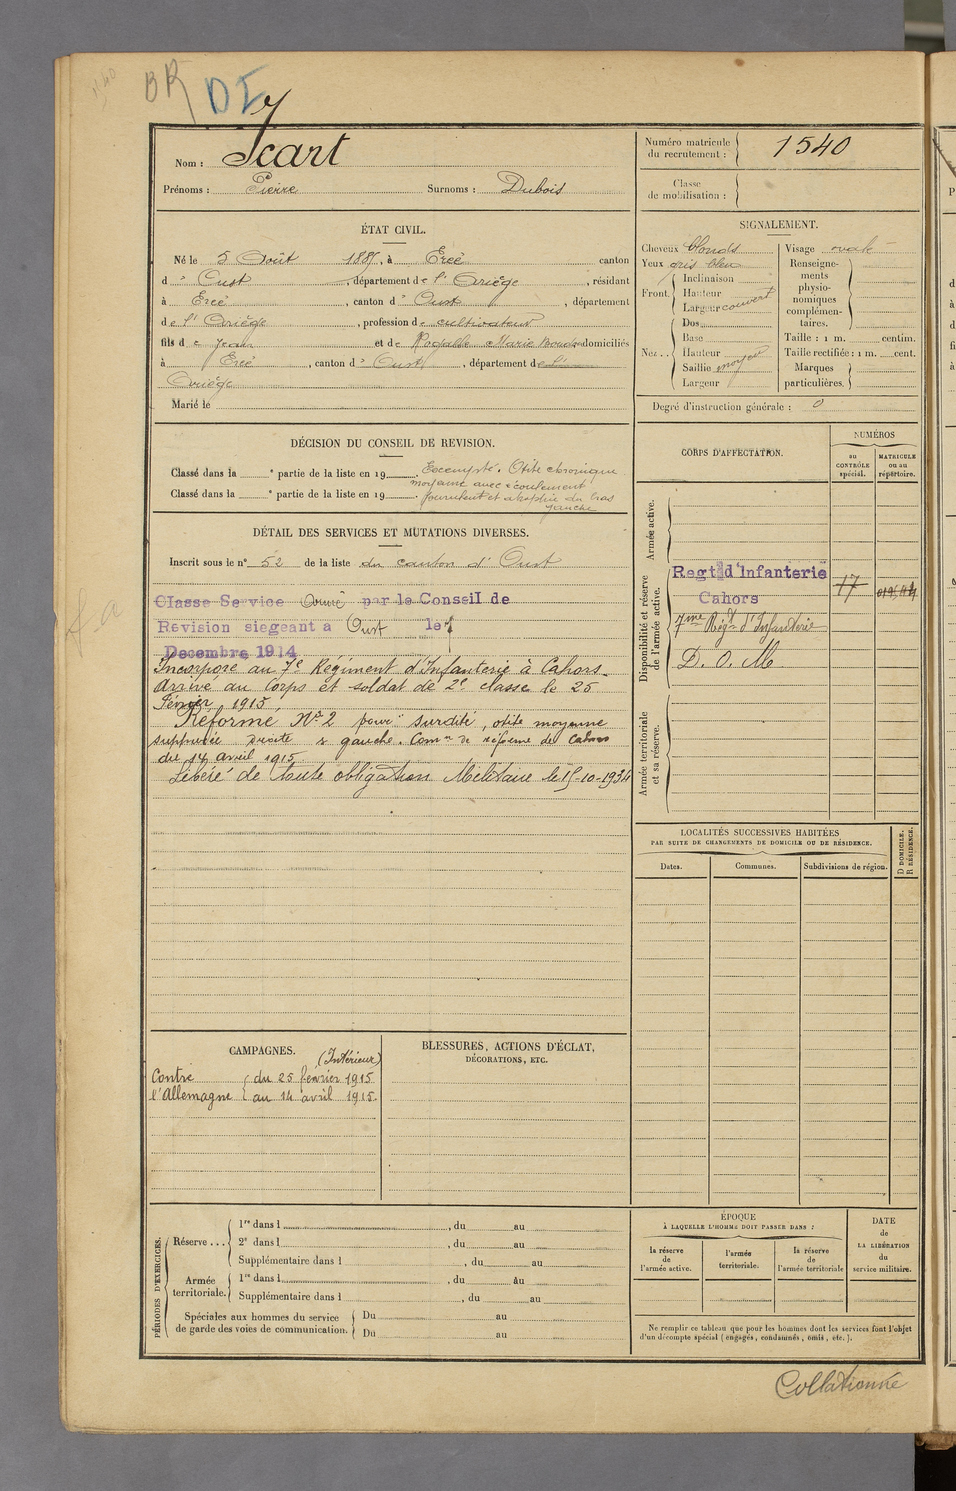 BR DI
Nom : Icart
Prénoms : Pierre Surnoms : Dubois
Numéro matricule
du recrutement : 1540
Classe
de mobilisation :
ÉTAT CIVIL.
Né le 5 Août 188 , à Ercé canton
d' Oust , département de l'Ariège , résidant
à Ercé , canton d' Oust , département
de l'Ariège , profession de cultivateur
fils de Jean et de Rogalle Marie domiciliés
à Ercé , canton d' Oust , département de l'
Ariège
Marié le
SIGNALEMENT.
Cheveux blonds
Yeux gris bleu
Front. Inclinaison
Hauteur
Largeur couvert
Nez.. Dos
Base
Hauteur
Saillie moyen
Largeur
Visage ovale
Renseigne-
ments
physio-
nomiques
complémen-
taires.
Taille : 1 m. centim.
Taille rectifiée : 1 m. cent.
Marques
particulières.
Degré d'instruction générale : 0
DÉCISION DU CONSEIL DE REVISION.
Classé dans la e partie de la liste en 19 . Exempté. Otite chronique
moyenne avec écoulement
Classé dans la e partie de la liste en 19 . purulent et atrophie du bras
gauche
DÉTAIL DES SERVICES ET MUTATIONS DIVERSES.
Inscrit sous le n° 52 de la liste du canton d'Oust
Classe Service Armé par le Conseil de
Revision siegeant a Oust le 7
Decembre 1914
Incorporé au 7e Régiment d'Infanterie à Cahors
Arrivé au Corps et soldat de 2e classe le 25
Février 1915
Réformé N° 2 pour surdité, otite moyenne
suppurée droite & gauche. Comon de réforme de Cahors
du 14 avril 1915
Libéré de toute obligation Militaire le 15-10-1934
CORPS D'AFFECTATION.
NUMÉROS
au
CONTRÔLE
spécial.
MATRICULE
ou au
répertoire.
Armée active.
Disponibilité et réserve
de l'armée active.
Regt d'Infanterie
Cahors
17
7me Régt d'Infanterie
D. O. M
Armée territoriale
et sa réserve.
LOCALITÉS SUCCESSIVES HABITÉES
PAR SUITE DE CHANGEMENTS DE DOMICILE OU DE RÉSIDENCE.
Dates. Communes. Subdivisions de région.
D DOMICILE.
R RÉSIDENCE.
CAMPAGNES.
(Intérieur)
Contre du 25 février 1915
l'Allemagne au 14 avril 1915.
BLESSURES, ACTIONS D'ÉCLAT,
DÉCORATIONS, ETC.
PÉRIODES D'EXERCICES.
Réserve ... 1re dans l , du au
2e dans l , du au
Supplémentaire dans l , du au
Armée
territoriale. 1re dans l , du au
Supplémentaire dans l , du au
Spéciales aux hommes du service
de garde des voies de communication. Du au
Du au
ÉPOQUE
À LAQUELLE L'HOMME DOIT PASSER DANS :
la réserve
de
l'armée active.
l'armée
territoriale.
la réserve
de
l'armée territoriale
DATE
de
LA LIBÉRATION
du
service militaire.
Ne remplir ce tableau que pour les hommes dont les services font l'objet
d'un décompte spécial (engagés, condamnés, omis, etc.).
Collationné